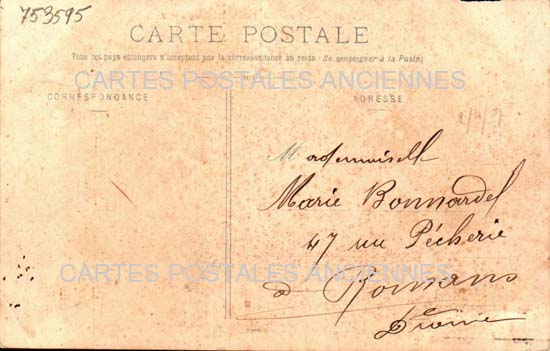 753595
CARTE POSTALE
Tous les pays étrangers n'acceptent pas la correspondance au recto (Se renseigner à la Poste)
CARTES POSTALES ANCIENNES
CORRESPONDANCE
ADRESSE
Mademoiselle
Marie Bonnardel
47 rue Pêcherie
CARTES POSTALES ANCIENNES
à Romans
Drôme